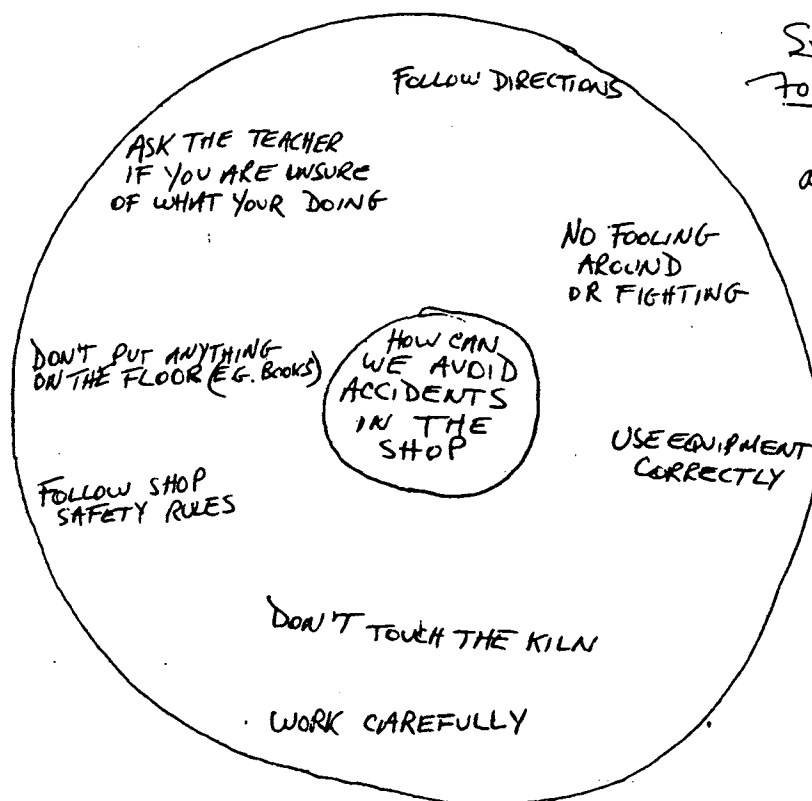 FOLLOW DIRECTIONS
ASK THE TEACHER
IF YOU ARE UNSURE
OF WHAT YOUR DOING
NO FOOLING
AROUND
OR FIGHTING
DON'T PUT ANYTHING
ON THE FLOOR (E.G. BOOKS)
HOW CAN
WE AVOID
ACCIDENTS
IN THE
SHOP
USE EQUIPMENT
CORRECTLY
FOLLOW SHOP
SAFETY RULES
DON'T TOUCH THE KILN
WORK CAREFULLY